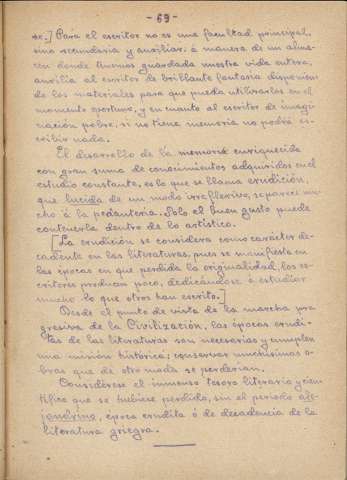 - 69 -
se.] Para el escritor no es una facultad principal,
sino secundaria y auxiliar: á manera de un alma-
cen donde tenemos guardada nuestra vida entera,
auxilia al escritor de brillante fantasia disponiendo
de los materiales para que pueda utilizarlos en el
momento oportuno, y en cuanto al escritor de imagi-
nación pobre, si no tiene memoria no podrá es-
cribir nada.
El desarrollo de la memoria enriquecida
con gran suma de conocimientos adquiridos en el
estudio constante, es lo que se llama erudición,
que lucida de un modo irreflexivo, se parece mu-
cho á la pedanteria. Solo el buen gusto puede
contenerla dentro de lo artistico.
[La erudición se considera como carácter de-
cadente en las literaturas, pues se manifiesta en
las épocas en que perdida la originalidad, los es-
critores producen poco, dedicándose á estudiar
mucho lo que otros han escrito.]
Desde el punto de vista de la marcha pro-
gresiva de la Civilización, las épocas erudi-
tas de las literaturas son necesarias y cumplen
una misión histórica: conservar muchisimas o-
bras que de otro modo se perderian.
Considérese el inmenso tesoro literario y cien-
tifico que se hubiese perdido, sin el periodo ale-
jandrino, época erudita ó de decadencia de la
literatura griega.